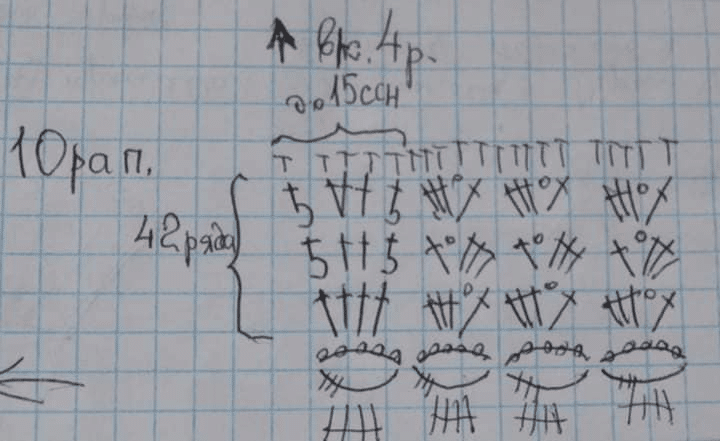 вк. 4 р.
до 15 ссн
10 рап.
42 ряда